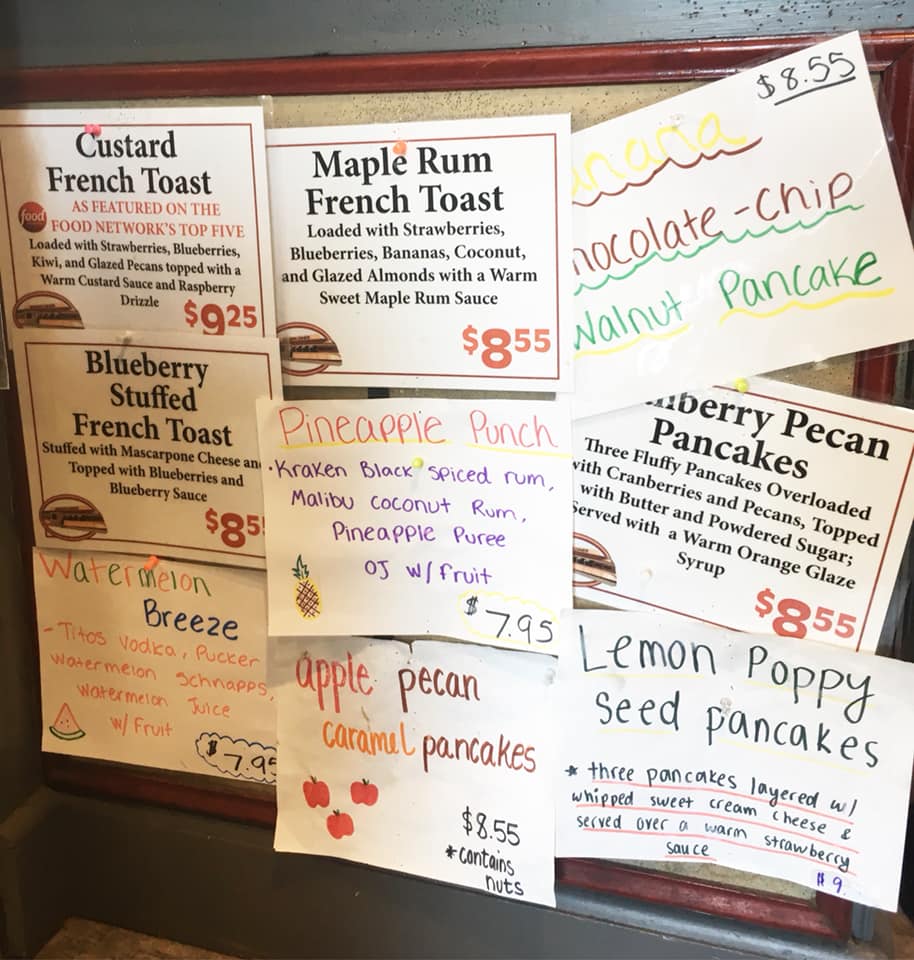 Custard
French Toast
food
AS FEATURED ON THE
FOOD NETWORK'S TOP FIVE
Loaded with Strawberries, Blueberries,
Kiwi, and Glazed Pecans topped with a
Warm Custard Sauce and Raspberry
Drizzle
$9.25
Maple Rum
French Toast
Loaded with Strawberries,
Blueberries, Bananas, Coconut,
and Glazed Almonds with a Warm
Sweet Maple Rum Sauce
$8.55
$8.55
anana
hocolate-Chip
Walnut Pancake
Blueberry
Stuffed
French Toast
Stuffed with Mascarpone Cheese an
Topped with Blueberries and
Blueberry Sauce
$8.5
Pineapple Punch
·Kraken Black spiced rum,
Malibu coconut Rum,
Pineapple Puree
OJ w/ fruit
$7.95
nberry Pecan
Pancakes
Three Fluffy Pancakes Overloaded
with Cranberries and Pecans, Topped
with Butter and Powdered Sugar;
Served with a Warm Orange Glaze
Syrup
$8.55
Watermelon
Breeze
- Titos Vodka, Pucker
Watermelon Schnapps,
Watermelon Juice
w/ Fruit
$7.95
apple pecan
caramel pancakes
$8.55
*contains
nuts
Lemon Poppy
Seed pancakes
* three pancakes layered w/
whipped sweet cream cheese &
served over a warm strawberry
sauce
$9